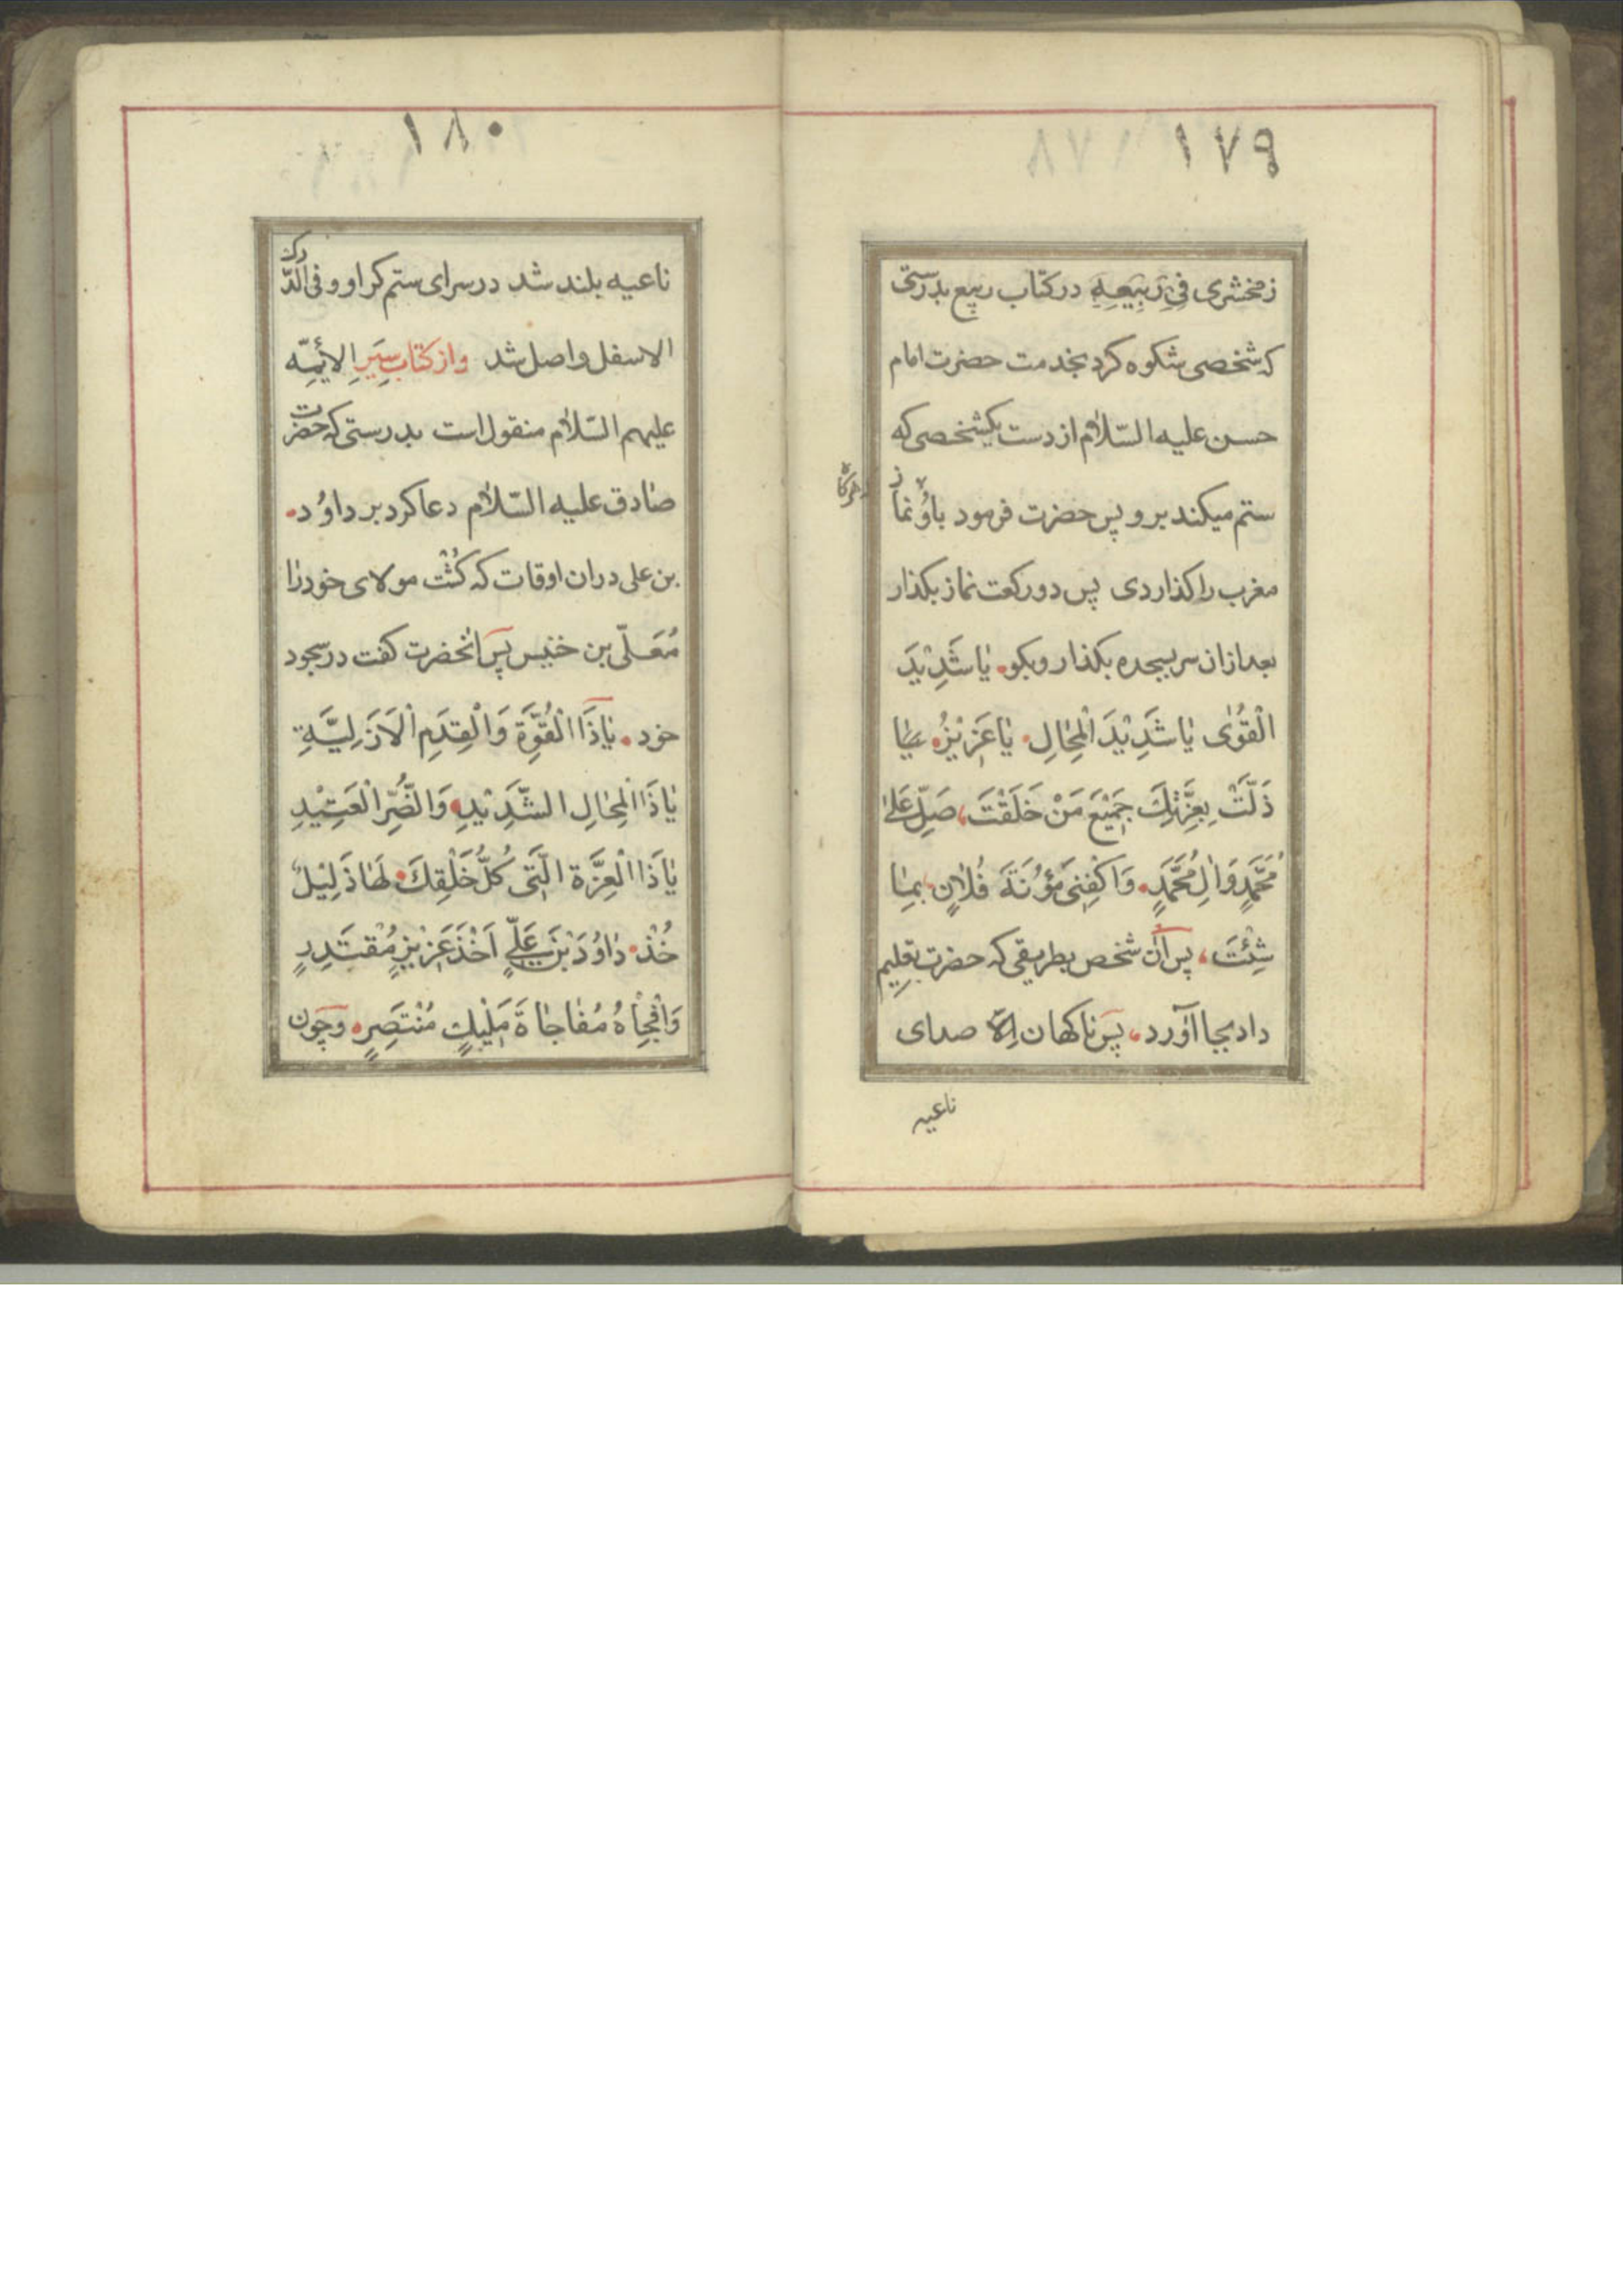 ١٧٩
زمخشری فِی رَبِیعِهِ در کتاب ربیع بدرستی
که شخصی شکوه کرد بخدمت حضرت امام
حسن علیه السّلام از دست یکشخصی که
ستم میکند برو پس حضرت فرمود باو نماز
هرگاه
مغرب را کذاردی پس دو رکعت نماز بکذار
بعد ازان سر بسجده بکذار و بکو یٰا شَدِیْدَ
الْقُوٰی یٰا شَدِیْدَ الْمِحٰالِ یٰا عَزِیْزُ یٰا
ذَلَّتْ بِعِزَّتِكَ جَمِیْعَ مَنْ خَلَقْتَ صَلِّ عَلیٰ
مُحَمَّدٍ وَاٰلِ مُحَمَّدٍ وَاکْفِنِی مَؤُنَةَ فُلاٰنٍ بِمٰا
شِئْتَ پس آن شخص بطریقی که حضرت تعلیم
داد بجا آورد پس ناکهان اِلاّ صدای
ناعیه
١٨٠
ناعیه بلند شد در سرای ستم کر او و فی الدّرك
الاسفل واصل شد واز کتاب سِیَرِ الائمِّه
علیهم السّلام منقول است بدرستی که حضرت
صٰادق علیه السّلام دعا کرد بر داوُد
بن علی دران اوقات که کُشْت مولای خود رٰا
مُعَلّی بن خنیس پس انحضرت کفت در سجود
خود یٰا ذَا الْقُوَّةِ وَالْقِدَمِ الْاَزَلِیَّةِ
یٰا ذَا الْمِحٰالِ الشَّدِیْدِ وَالنَّصْرِ الْعَتِیْدِ
یٰا ذَا الْعِزَّةِ الَّتِی کُلُّ خَلْقِكَ لَهٰا ذَلِیْلٌ
خُذْ دٰاوُدَ بْنَ عَلِیٍّ اَخْذَ عَزِیْزٍ مُقْتَدِرٍ
وَافْجَأْهُ مُفٰاجٰاةَ مَلِیْكٍ مُنْتَصِرٍ وچون